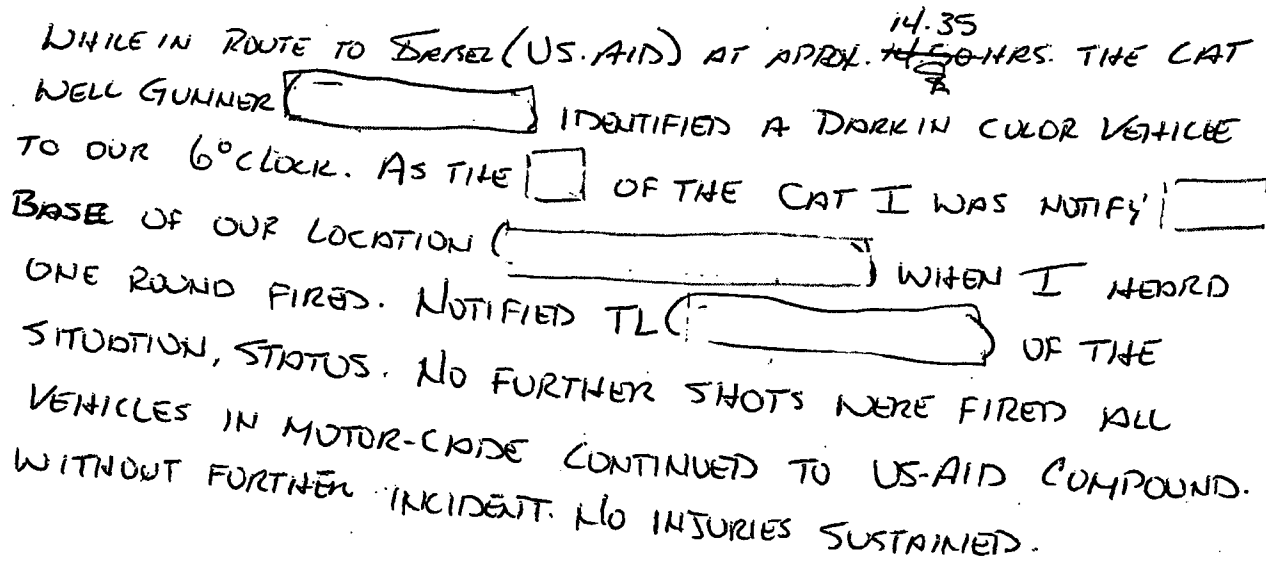 14.35
WHILE IN ROUTE TO (US.AID) AT APPROX. HRS. THE CAT
WELL GUNNER ( ) IDENTIFIED A DARK IN COLOR VEHICLE
TO OUR 6 O'CLOCK. AS THE OF THE CAT I WAS NOTIFY
BASE OF OUR LOCATION ( ) WHEN I HEARD
ONE ROUND FIRED. NOTIFIED TL ( ) OF THE
SITUATION, STATUS. NO FURTHER SHOTS WERE FIRED ALL
VEHICLES IN MOTOR-CADE CONTINUED TO US-AID COMPOUND.
WITHOUT FURTHER INCIDENT. NO INJURIES SUSTAINED.